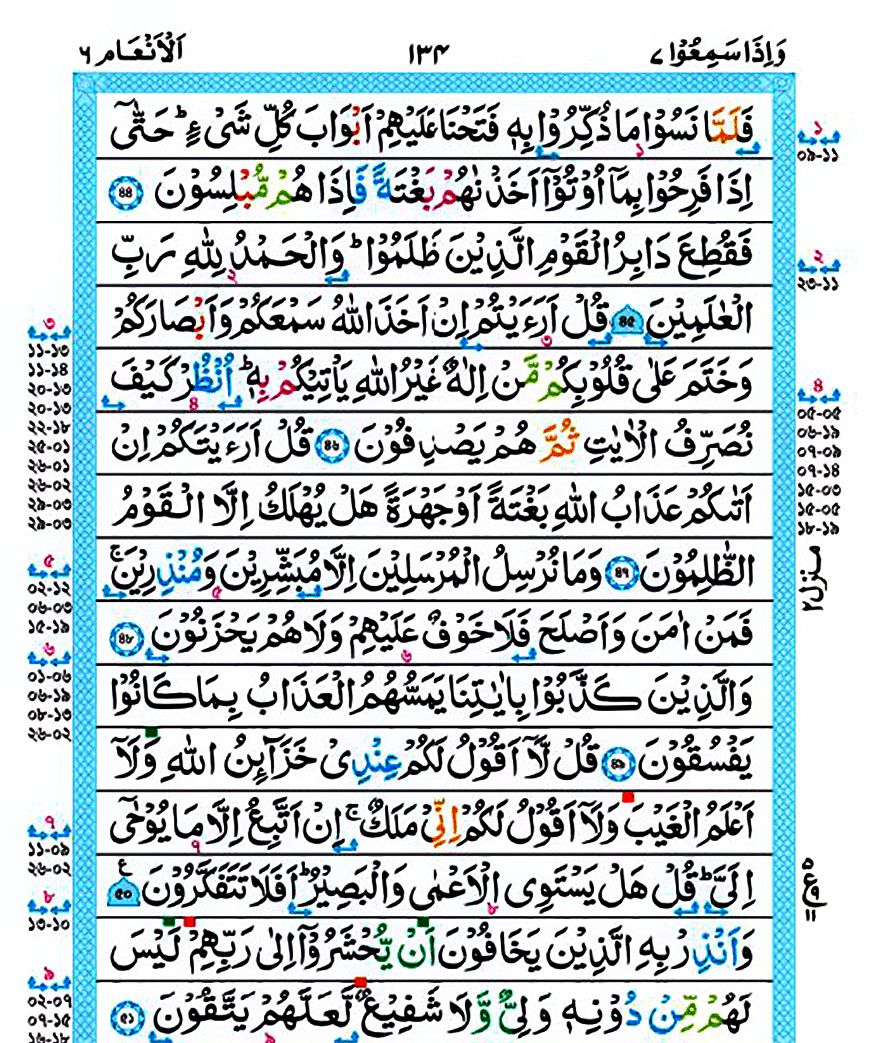 وَاِذَا سَمِعُوْا ۷
۱۳۴
اَلْاَنْعَام ۶
فَلَمَّا نَسُوْا مَا ذُكِّرُوْا بِهٖ فَتَحْنَا عَلَيْهِمْ اَبْوَابَ كُلِّ شَىْءٍ ؕ حَتّٰٓى
اِذَا فَرِحُوْا بِمَاۤ اُوْتُوْۤا اَخَذْنٰهُمْ بَغْتَةً فَاِذَا هُمْ مُّبْلِسُوْنَ ۴۴
فَقُطِعَ دَابِرُ الْقَوْمِ الَّذِيْنَ ظَلَمُوْا ؕ وَالْحَمْدُ لِلّٰهِ رَبِّ
الْعٰلَمِيْنَ ۴۵ قُلْ اَرَءَيْتُمْ اِنْ اَخَذَ اللّٰهُ سَمْعَكُمْ وَاَبْصَارَكُمْ
وَخَتَمَ عَلٰى قُلُوْبِكُمْ مَّنْ اِلٰهٌ غَيْرُ اللّٰهِ يَاْتِيْكُمْ بِهٖ ؕ اُنْظُرْ كَيْفَ
نُصَرِّفُ الْاٰيٰتِ ثُمَّ هُمْ يَصْدِفُوْنَ ۴۶ قُلْ اَرَءَيْتَكُمْ اِنْ
اَتٰىكُمْ عَذَابُ اللّٰهِ بَغْتَةً اَوْ جَهْرَةً هَلْ يُهْلَكُ اِلَّا الْقَوْمُ
الظّٰلِمُوْنَ ۴۷ وَمَا نُرْسِلُ الْمُرْسَلِيْنَ اِلَّا مُبَشِّرِيْنَ وَمُنْذِرِيْنَ ۚ
فَمَنْ اٰمَنَ وَاَصْلَحَ فَلَا خَوْفٌ عَلَيْهِمْ وَلَا هُمْ يَحْزَنُوْنَ ۴۸
وَالَّذِيْنَ كَذَّبُوْا بِاٰيٰتِنَا يَمَسُّهُمُ الْعَذَابُ بِمَا كَانُوْا
يَفْسُقُوْنَ ۴۹ قُلْ لَّاۤ اَقُوْلُ لَكُمْ عِنْدِىْ خَزَآئِنُ اللّٰهِ وَلَاۤ
اَعْلَمُ الْغَيْبَ وَلَاۤ اَقُوْلُ لَكُمْ اِنِّىْ مَلَكٌ ۚ اِنْ اَتَّبِعُ اِلَّا مَا يُوْحٰٓى
اِلَىَّ ؕ قُلْ هَلْ يَسْتَوِى الْاَعْمٰى وَالْبَصِيْرُ ؕ اَفَلَا تَتَفَكَّرُوْنَ ۵۰
وَاَنْذِرْ بِهِ الَّذِيْنَ يَخَافُوْنَ اَنْ يُّحْشَرُوْۤا اِلٰى رَبِّهِمْ لَيْسَ
لَهُمْ مِّنْ دُوْنِهٖ وَلِىٌّ وَّلَا شَفِيْعٌ لَّعَلَّهُمْ يَتَّقُوْنَ ۵۱
منزل ۲